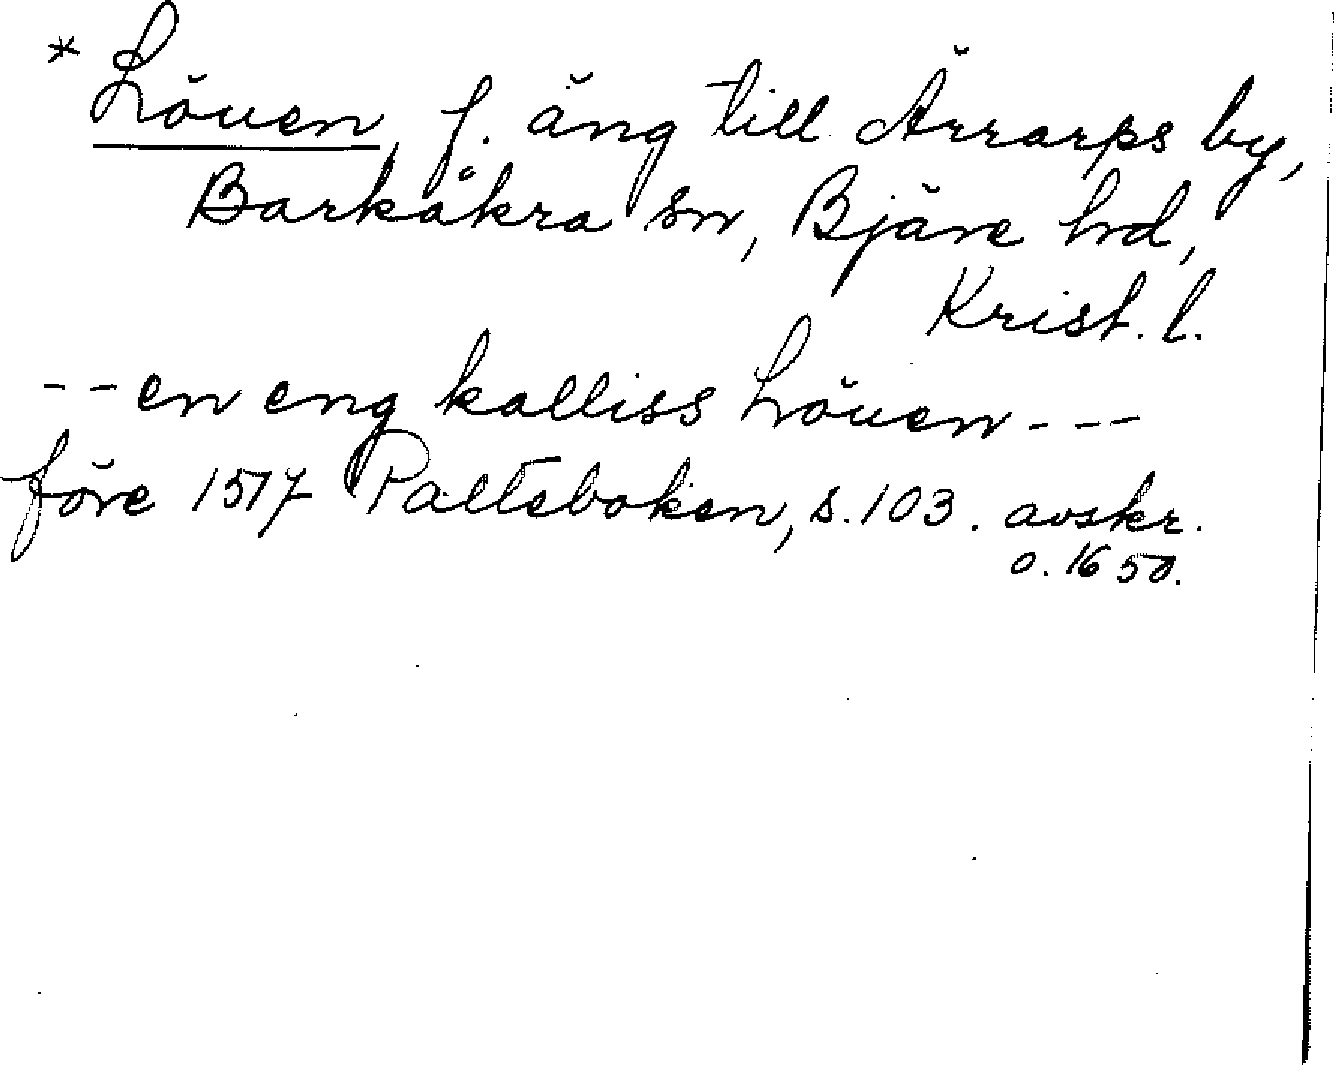 * Löuen, f. äng till Ärrarps by,
Barkåkra sn, Bjäre hd,
Krist. l.
-- en eng kalliss Löuen ---
före 1517 Palteboken, s. 103. avskr.
o. 1650.